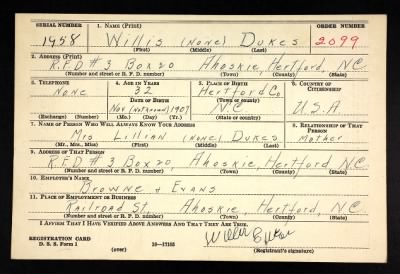 SERIAL NUMBER 1. NAME (Print) ORDER NUMBER
1458 Willis (None) Dukes 2099
(First) (Middle) (Last)
2. ADDRESS (Print)
R.F.D #3 Box 20 Ahoskie, Hertford, N.C.
(Number and street or R. F. D. number) (Town) (County) (State)
3. TELEPHONE 4. AGE IN YEARS 5. PLACE OF BIRTH 6. COUNTRY OF CITIZENSHIP
None 32 Hertford Co
DATE OF BIRTH (Town or county)
Nov (Not Known) 1907 N.C U.S.A
(Exchange) (Number) (Mo.) (Day) (Yr.) (State or country)
7. NAME OF PERSON WHO WILL ALWAYS KNOW YOUR ADDRESS 8. RELATIONSHIP OF THAT PERSON
Mrs Lillian (None) Dukes Mother
(Mr., Mrs., Miss) (First) (Middle) (Last)
9. ADDRESS OF THAT PERSON
R.F.D #3 Box 20, Ahoskie, Hertford, N.C.
(Number and street or R. F. D. number) (Town) (County) (State)
10. EMPLOYER'S NAME
Browne & Evans
11. PLACE OF EMPLOYMENT OR BUSINESS
Railroad St, Ahoskie, Hertford, N.C.
(Number and street or R. F. D. number) (Town) (County) (State)
I AFFIRM THAT I HAVE VERIFIED ABOVE ANSWERS AND THAT THEY ARE TRUE.
REGISTRATION CARD
D. S. S. Form 1 (over) 16—17105 (Registrant's signature)